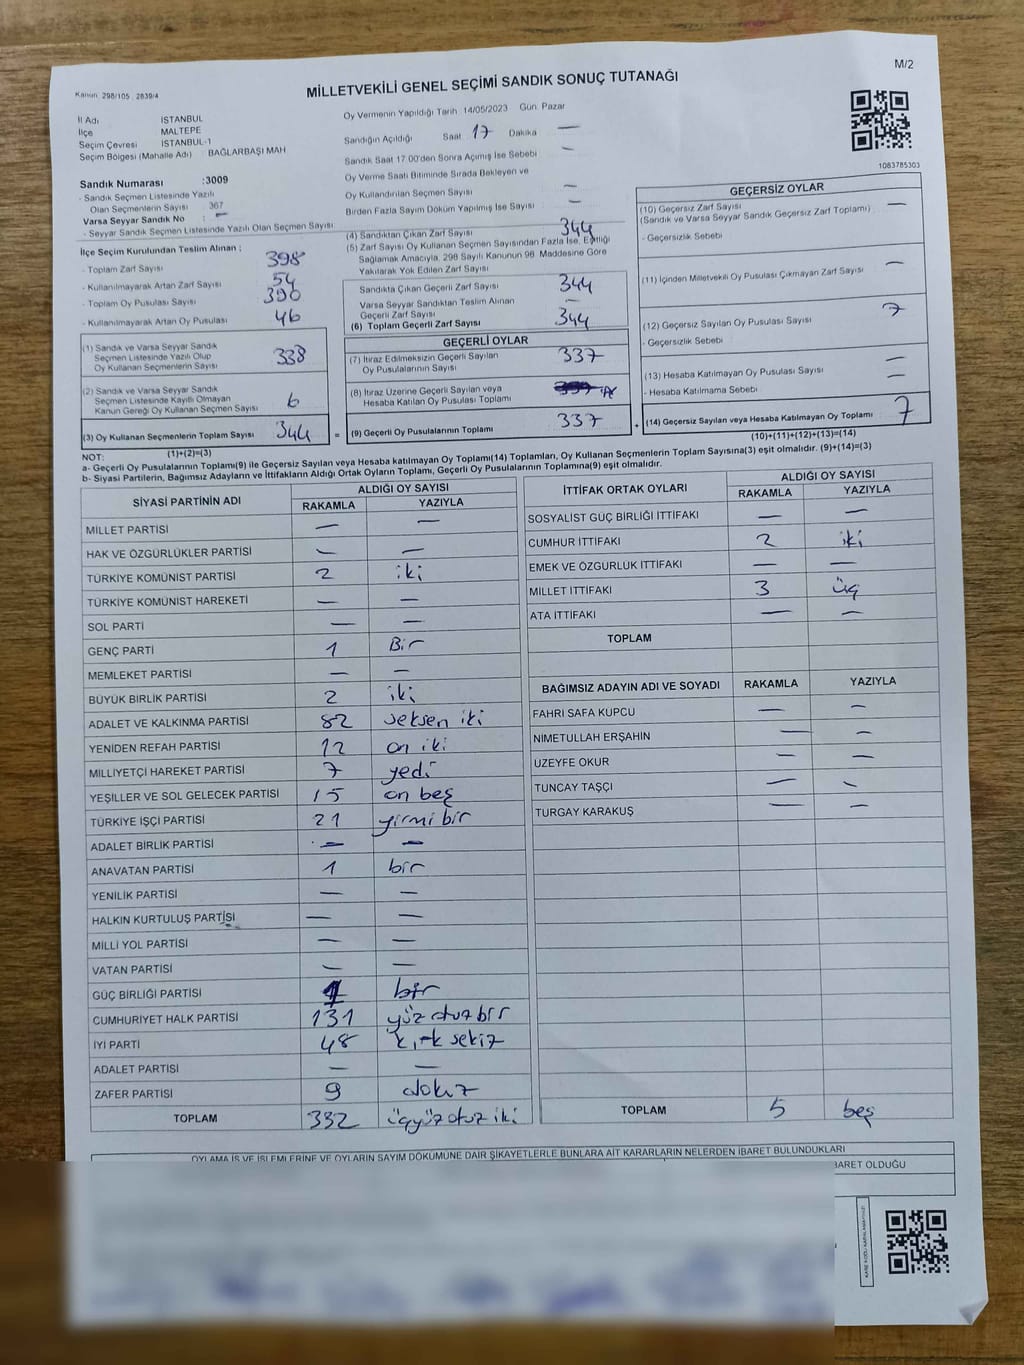 M/2
Kanun: 298/105, 2839/4
MİLLETVEKİLİ GENEL SEÇİMİ SANDIK SONUÇ TUTANAĞI
İl Adı İSTANBUL
İlçe MALTEPE
Seçim Çevresi İSTANBUL-1
Seçim Bölgesi (Mahalle Adı) : BAĞLARBAŞI MAH
Oy Vermenin Yapıldığı Tarih 14/05/2023 Gün: Pazar
Sandığın Açıldığı Saat 17 Dakika —
Sandık Saat 17.00'den Sonra Açılmış İse Sebebi —
Oy Verme Saati Bitiminde Sırada Bekleyen ve
Oy Kullandırılan Seçmen Sayısı —
Birden Fazla Sayım Döküm Yapılmış İse Sayısı —
1083785303
Sandık Numarası :3009
- Sandık Seçmen Listesinde Yazılı
Olan Seçmenlerin Sayısı : 367
Varsa Seyyar Sandık No : —
- Seyyar Sandık Seçmen Listesinde Yazılı Olan Seçmen Sayısı:
İlçe Seçim Kurulundan Teslim Alınan :
- Toplam Zarf Sayısı 398
- Kullanılmayarak Artan Zarf Sayısı 54
- Toplam Oy Pusulası Sayısı 390
- Kullanılmayarak Artan Oy Pusulası 46
(1) Sandık ve Varsa Seyyar Sandık
Seçmen Listesinde Yazılı Olup
Oy Kullanan Seçmenlerin Sayısı 338
(2) Sandık ve Varsa Seyyar Sandık
Seçmen Listesinde Kayıtlı Olmayan
Kanun Gereği Oy Kullanan Seçmen Sayısı 6
(3) Oy Kullanan Seçmenlerin Toplam Sayısı 344
(1)+(2)=(3)
(4) Sandıktan Çıkan Zarf Sayısı 344
(5) Zarf Sayısı Oy Kullanan Seçmen Sayısından Fazla İse, Eşitliği
Sağlamak Amacıyla, 298 Sayılı Kanunun 98. Maddesine Göre
Yakılarak Yok Edilen Zarf Sayısı
Sandıkta Çıkan Geçerli Zarf Sayısı 344
Varsa Seyyar Sandıktan Teslim Alınan
Geçerli Zarf Sayısı —
(6) Toplam Geçerli Zarf Sayısı 344
GEÇERLİ OYLAR
(7) İtiraz Edilmeksizin Geçerli Sayılan
Oy Pusulalarının Sayısı 337
(8) İtiraz Üzerine Geçerli Sayılan veya
Hesaba Katılan Oy Pusulası Toplamı
= (9) Geçerli Oy Pusulalarının Toplamı 337
GEÇERSİZ OYLAR
(10) Geçersiz Zarf Sayısı
(Sandık ve Varsa Seyyar Sandık Geçersiz Zarf Toplamı) —
- Geçersizlik Sebebi
(11) İçinden Milletvekili Oy Pusulası Çıkmayan Zarf Sayısı —
(12) Geçersiz Sayılan Oy Pusulası Sayısı 7
- Geçersizlik Sebebi
(13) Hesaba Katılmayan Oy Pusulası Sayısı —
- Hesaba Katılmama Sebebi —
+ (14) Geçersiz Sayılan veya Hesaba Katılmayan Oy Toplamı 7
(10)+(11)+(12)+(13)=(14)
NOT:
a- Geçerli Oy Pusulalarının Toplamı(9) ile Geçersiz Sayılan veya Hesaba katılmayan Oy Toplamı(14) Toplamları, Oy Kullanan Seçmenlerin Toplam Sayısına(3) eşit olmalıdır. (9)+(14)=(3)
b- Siyasi Partilerin, Bağımsız Adayların ve İttifakların Aldığı Ortak Oyların Toplamı, Geçerli Oy Pusulalarının Toplamına(9) eşit olmalıdır.
SİYASİ PARTİNİN ADI ALDIĞI OY SAYISI
RAKAMLA YAZIYLA
MİLLET PARTİSİ — —
HAK VE ÖZGÜRLÜKLER PARTİSİ — —
TÜRKİYE KOMÜNİST PARTİSİ 2 iki
TÜRKİYE KOMÜNİST HAREKETİ — —
SOL PARTİ — —
GENÇ PARTİ 1 Bir
MEMLEKET PARTİSİ — —
BÜYÜK BİRLİK PARTİSİ 2 iki
ADALET VE KALKINMA PARTİSİ 82 seksen iki
YENİDEN REFAH PARTİSİ 12 on iki
MİLLİYETÇİ HAREKET PARTİSİ 7 yedi
YEŞİLLER VE SOL GELECEK PARTİSİ 15 on beş
TÜRKİYE İŞÇİ PARTİSİ 21 yirmi bir
ADALET BİRLİK PARTİSİ — —
ANAVATAN PARTİSİ 1 bir
YENİLİK PARTİSİ — —
HALKIN KURTULUŞ PARTİSİ — —
MİLLİ YOL PARTİSİ — —
VATAN PARTİSİ — —
GÜÇ BİRLİĞİ PARTİSİ 1 bir
CUMHURİYET HALK PARTİSİ 131 yüz otuz bir
İYİ PARTİ 48 kırk sekiz
ADALET PARTİSİ — —
ZAFER PARTİSİ 9 dokuz
TOPLAM 332 üçyüz otuz iki
İTTİFAK ORTAK OYLARI ALDIĞI OY SAYISI
RAKAMLA YAZIYLA
SOSYALİST GÜÇ BİRLİĞİ İTTİFAKI — —
CUMHUR İTTİFAKI 2 iki
EMEK VE ÖZGÜRLÜK İTTİFAKI — —
MİLLET İTTİFAKI 3 üç
ATA İTTİFAKI — —
TOPLAM
BAĞIMSIZ ADAYIN ADI VE SOYADI RAKAMLA YAZIYLA
FAHRİ SAFA KÜPCÜ — —
NİMETULLAH ERŞAHİN — —
ÜZEYFE OKUR — —
TUNCAY TAŞÇI — —
TURGAY KARAKUŞ — —
TOPLAM 5 beş
OYLAMA İŞ VE İŞLEMLERİNE VE OYLARIN SAYIM DÖKÜMÜNE DAİR ŞİKAYETLERLE BUNLARA AİT KARARLARIN NELERDEN İBARET BULUNDUKLARI
BARET OLDUĞU